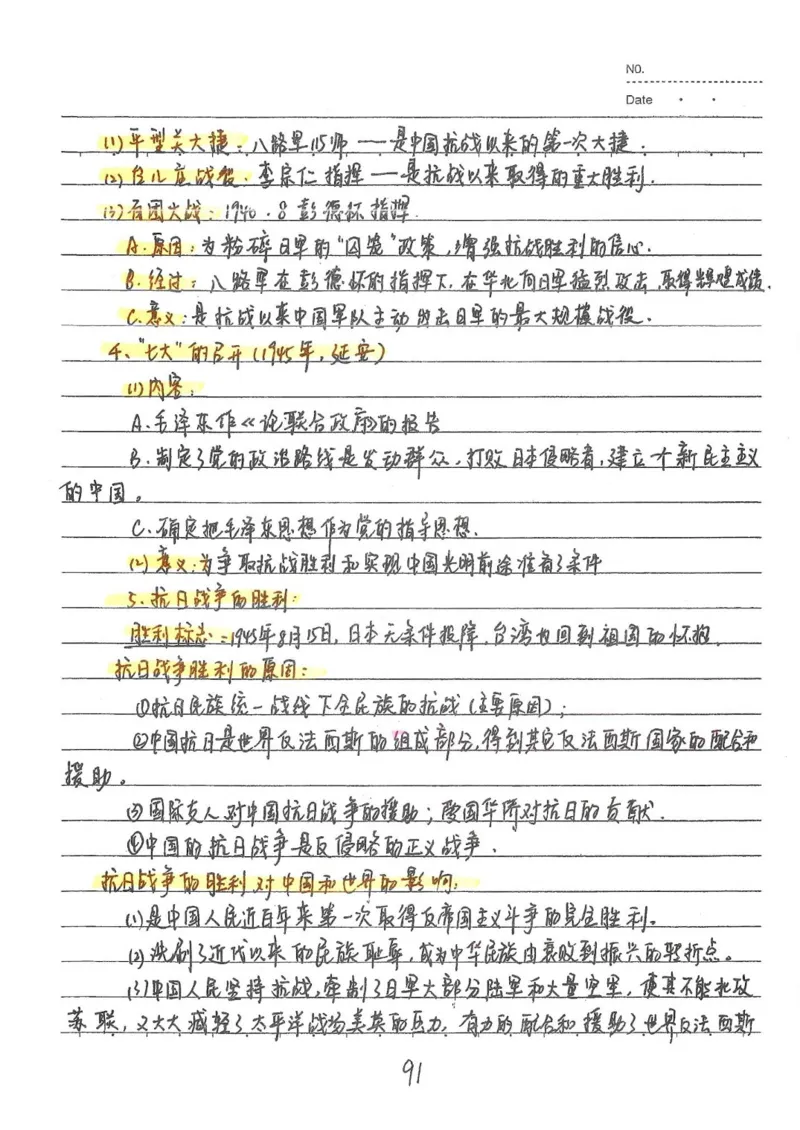 NO.
Date
(1)平型关大捷:八路军115师——是中国抗战以来的第一次大捷.
(2)台儿庄战役.李宗仁指挥——是抗战以来取得的重大胜利.
(3)百团大战:1940.8 彭德怀指挥.
A.原因:为粉碎日军的"囚笼"政策,增强抗战胜利的信心.
B.经过:八路军在彭德怀的指挥下,在华北向日军猛烈攻击,取得辉煌成绩.
C.意义:是抗战以来中国军队主动出击日军的最大规模战役.
4、"七大"的召开(1945年,延安)
(1)内容:
A.毛泽东作《论联合政府》的报告
B.制定了党的政治路线是发动群众,打败日本侵略者,建立个新民主主义
的中国。
C.确定把毛泽东思想作为党的指导思想.
(2)意义:为争取抗战胜利和实现中国光明前途准备了条件
5.抗日战争的胜利:
胜利标志:1945年8月15日,日本无条件投降,台湾也回到祖国的怀抱.
抗日战争胜利的原因:
①抗日民族统一战线下全民族的抗战(主要原因);
②中国抗日是世界反法西斯的组成部分,得到其它反法西斯国家的配合和
援助。
③国际友人对中国抗日战争的援助;爱国华侨对抗日的贡献.
④中国的抗日战争是反侵略的正义战争.
抗日战争的胜利对中国和世界的影响:
(1)是中国人民近百年来第一次取得反帝国主义斗争的完全胜利。
(2)洗刷了近代以来的民族耻辱,成为中华民族由衰败到振兴的转折点。
(3)中国人民坚持抗战,牵制了日军大部分陆军和大量空军,使其不能北攻
苏联,又大大减轻了太平洋战场美英的压力,有力的配合和援助了世界反法西斯
91